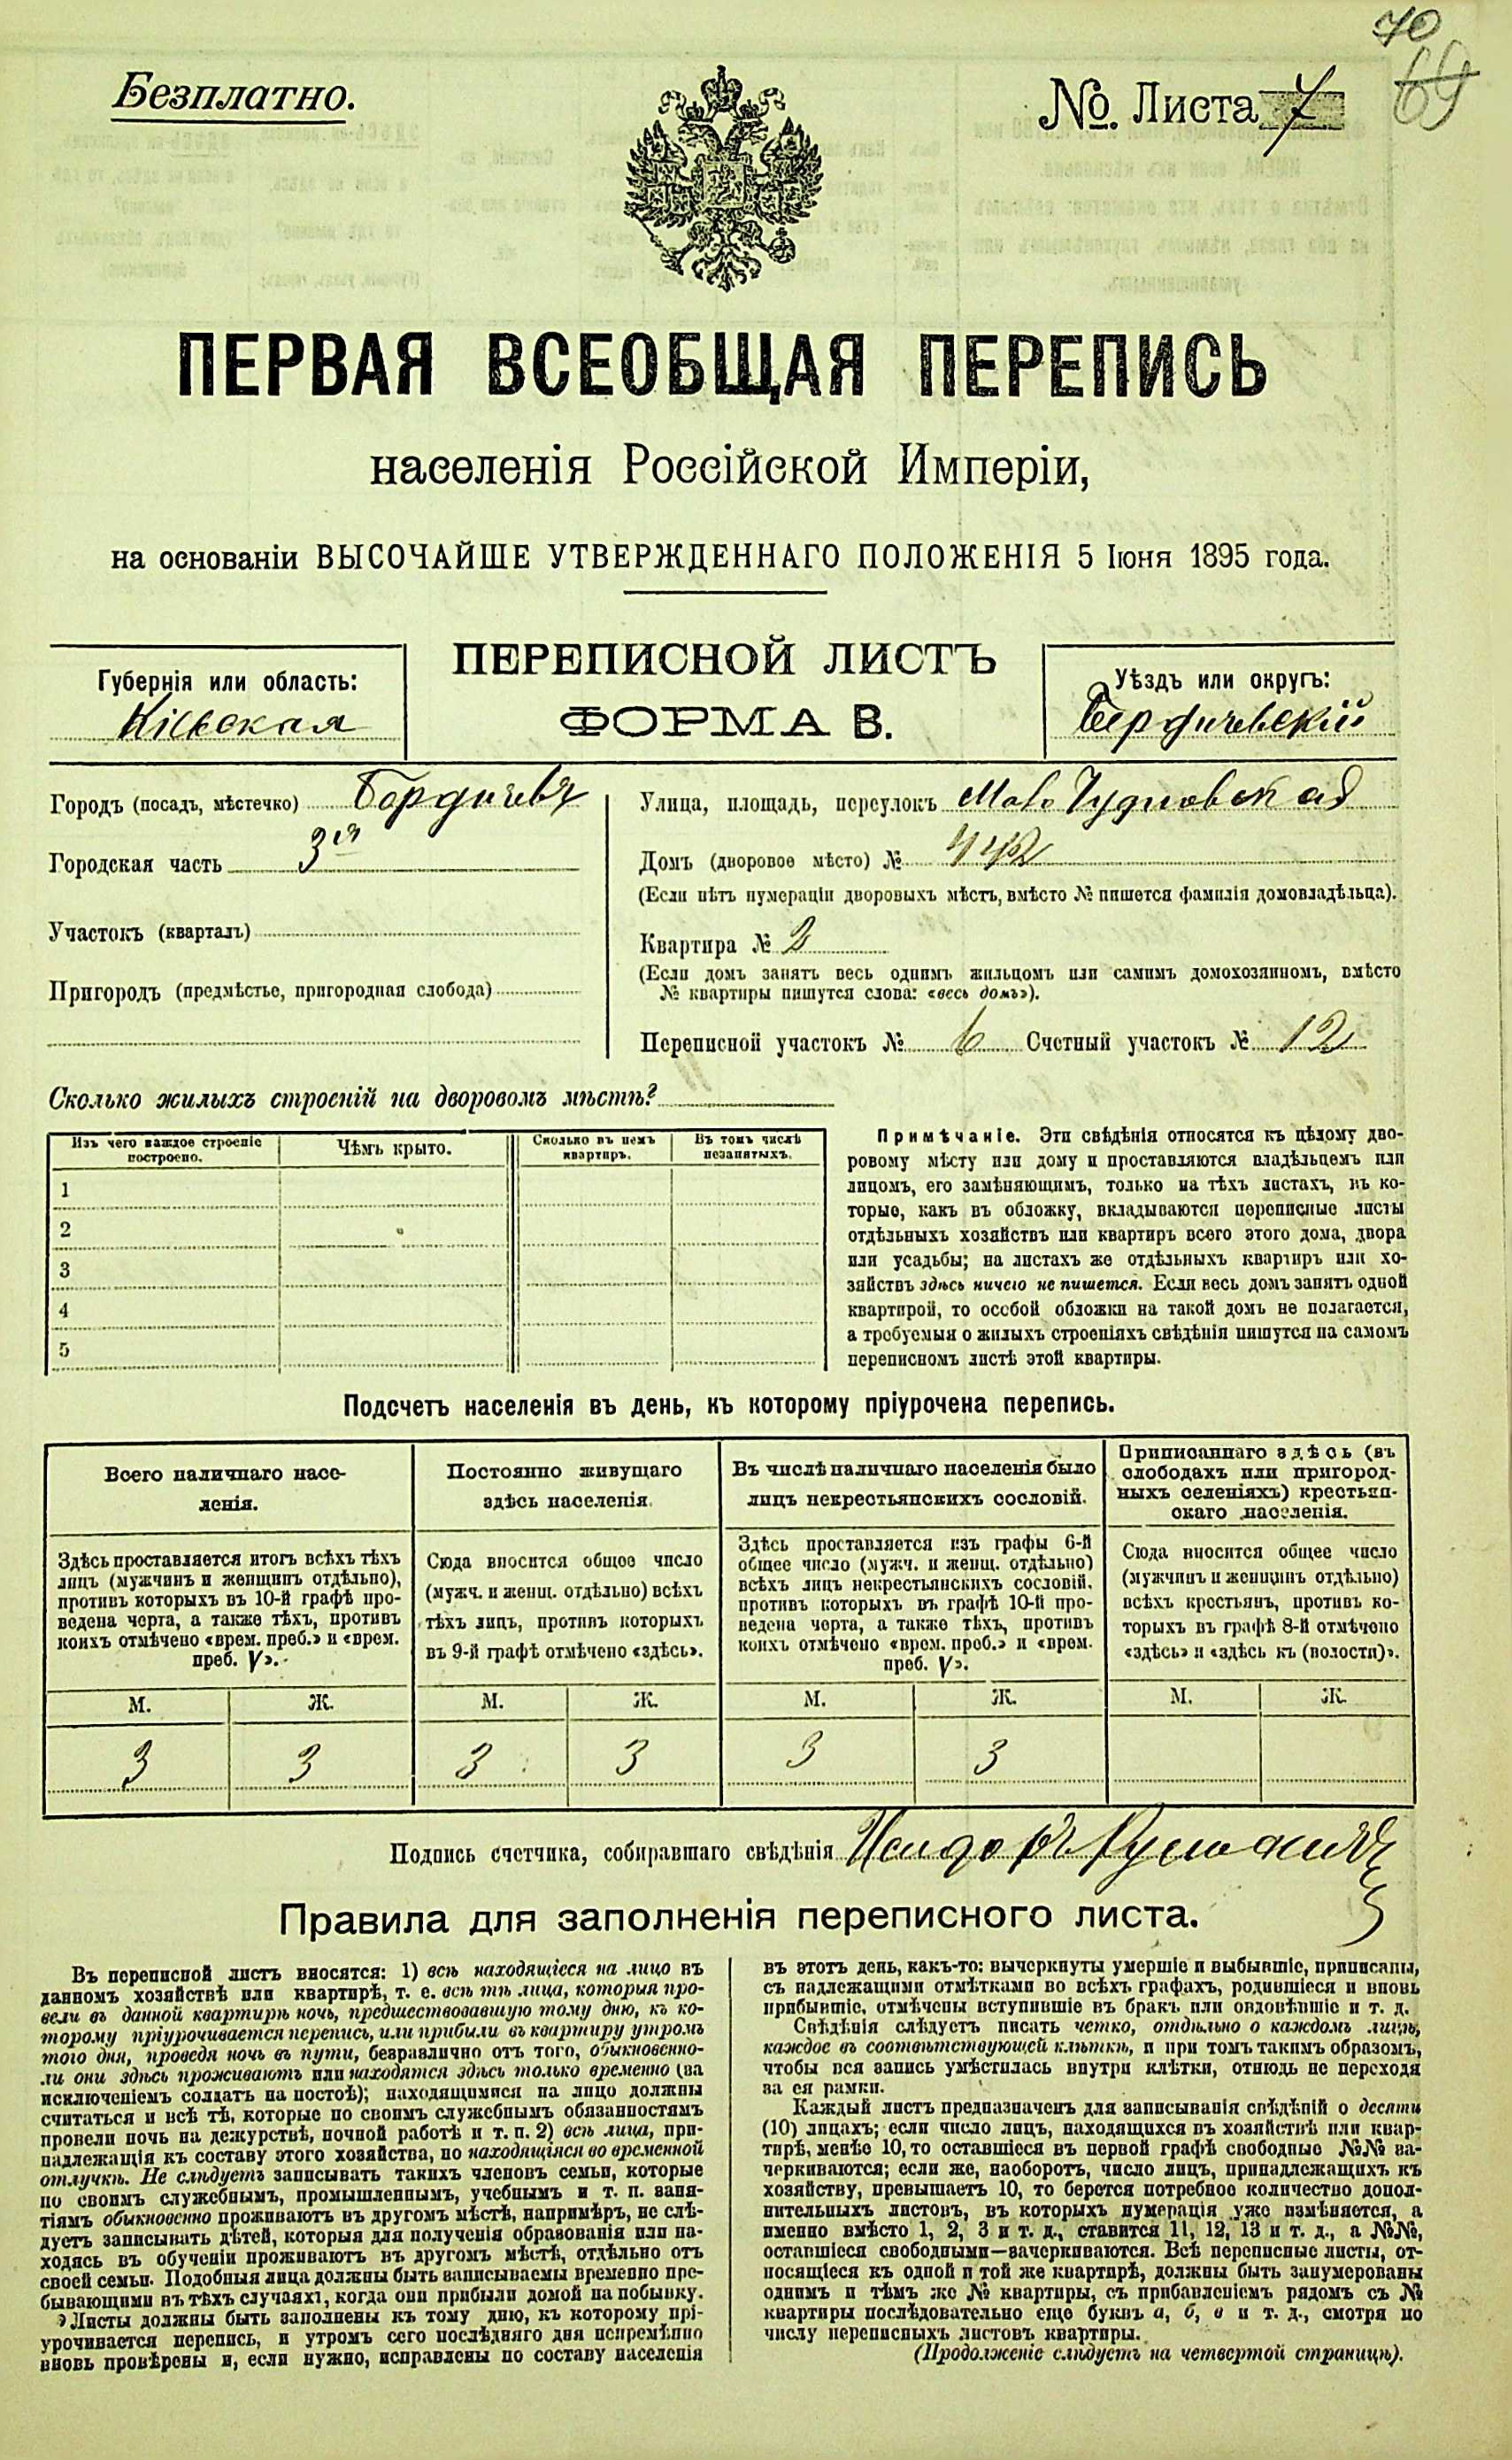 70
69
Безплатно.
№ Листа 7
ПЕРВАЯ ВСЕОБЩАЯ ПЕРЕПИСЬ
населенія Россійской Имперіи,
на основаніи ВЫСОЧАЙШЕ УТВЕРЖДЕННАГО ПОЛОЖЕНІЯ 5 Іюня 1895 года.
Губернія или область:
Кіевская
ПЕРЕПИСНОЙ ЛИСТЪ
ФОРМА В.
Уѣздъ или округъ:
Бердичевскій
Городъ (посадъ, мѣстечко) Бердичевъ
Городская часть 3я
Участокъ (кварталъ)
Пригородъ (предмѣстье, пригородная слобода)
Улица, площадь, переулокъ Мало Чудновская
Домъ (дворовое мѣсто) № 442
(Если нѣтъ нумераціи дворовыхъ мѣстъ, вмѣсто № пишется фамилія домовладѣльца).
Квартира № 2
(Если домъ занятъ весь однимъ жильцомъ или самимъ домохозяиномъ, вмѣсто
№ квартиры пишутся слова: «весь домъ»).
Переписной участокъ № 6 Счетный участокъ № 12
Сколько жилыхъ строеній на дворовомъ мѣстѣ?
Изъ чего каждое строеніе
построено.
Чѣмъ крыто.
Сколько въ немъ
квартиръ.
Въ томъ числѣ
незанятыхъ.
1
2
3
4
5
Примѣчаніе. Эти свѣдѣнія относятся къ цѣлому дво-
ровому мѣсту или дому и проставляются владѣльцемъ или
лицомъ, его замѣняющимъ, только на тѣхъ листахъ, въ ко-
торые, какъ въ обложку, вкладываются переписные листы
отдѣльныхъ хозяйствъ или квартиръ всего этого дома, двора
или усадьбы; на листахъ же отдѣльныхъ квартиръ или хо-
зяйствъ здѣсь ничего не пишется. Если весь домъ занятъ одной
квартирой, то особой обложки на такой домъ не полагается,
а требуемыя о жилыхъ строеніяхъ свѣдѣнія пишутся на самомъ
переписномъ листѣ этой квартиры.
Подсчетъ населенія въ день, къ которому пріурочена перепись.
Всего наличнаго насе-
ленія.
Здѣсь проставляется итогъ всѣхъ тѣхъ
лицъ (мужчинъ и женщинъ отдѣльно),
противъ которыхъ въ 10-й графѣ про-
ведена черта, а также тѣхъ, противъ
коихъ отмѣчено «врем. преб.» и «врем.
преб. V».
М. Ж.
3 3
Постоянно живущаго
здѣсь населенія.
Сюда вносится общее число
(мужч. и женщ. отдѣльно) всѣхъ
тѣхъ лицъ, противъ которыхъ
въ 9-й графѣ отмѣчено «здѣсь».
М. Ж.
3 3
Въ числѣ наличнаго населенія было
лицъ некрестьянскихъ сословій.
Здѣсь проставляется изъ графы 6-й
общее число (мужч. и женщ. отдѣльно)
всѣхъ лицъ некрестьянскихъ сословій,
противъ которыхъ въ графѣ 10-й про-
ведена черта, а также тѣхъ, противъ
коихъ отмѣчено «врем. преб.» и «врем.
преб. V».
М. Ж.
3 3
Приписаннаго здѣсь (въ
слободахъ или пригород-
ныхъ селеніяхъ) крестьян-
скаго населенія.
Сюда вносится общее число
(мужчинъ и женщинъ отдѣльно)
всѣхъ крестьянъ, противъ ко-
торыхъ въ графѣ 8-й отмѣчено
«здѣсь» и «здѣсь къ (волости)».
М. Ж.
Подпись счетчика, собиравшаго свѣдѣнія Исидоръ
Правила для заполненія переписного листа.
Въ переписной листъ вносятся: 1) всѣ находящіеся на лицо въ
данномъ хозяйствѣ или квартирѣ, т. е. всѣ тѣ лица, которыя про-
вели въ данной квартирѣ ночь, предшествовавшую тому дню, къ ко-
торому пріурочивается перепись, или прибыли въ квартиру утромъ
того дня, проведя ночь въ пути, безразлично отъ того, обыкновенно-
ли они здѣсь проживаютъ или находятся здѣсь только временно (за
исключеніемъ солдатъ на постоѣ); находящимися на лицо должны
считаться и всѣ тѣ, которые по своимъ служебнымъ обязанностямъ
провели ночь на дежурствѣ, ночной работѣ и т. п. 2) всѣ лица, при-
надлежащія къ составу этого хозяйства, но находящіяся во временной
отлучкѣ. Не слѣдуетъ записывать такихъ членовъ семьи, которые
по своимъ служебнымъ, промышленнымъ, учебнымъ и т. п. заня-
тіямъ обыкновенно проживаютъ въ другомъ мѣстѣ, напримѣръ, не слѣ-
дуетъ записывать дѣтей, которыя для полученія образованія или на-
ходясь въ обученіи проживаютъ въ другомъ мѣстѣ, отдѣльно отъ
своей семьи. Подобныя лица должны быть записываемы временно пре-
бывающими въ тѣхъ случаяхъ, когда они прибыли домой на побывку.
Листы должны быть заполнены къ тому дню, къ которому прі-
урочивается перепись, и утромъ сего послѣдняго дня непремѣнно
вновь провѣрены и, если нужно, исправлены по составу населенія
въ этотъ день, какъ-то: вычеркнуты умершіе и выбывшіе, приписаны,
съ надлежащими отмѣтками во всѣхъ графахъ, родившіеся и вновь
прибывшіе, отмѣчены вступившіе въ бракъ или овдовѣвшіе и т. д.
Свѣдѣнія слѣдуетъ писать четко, отдѣльно о каждомъ лицѣ,
каждое въ соотвѣтствующей клѣткѣ, и при томъ такимъ образомъ,
чтобы вся запись умѣстилась внутри клѣтки, отнюдь не переходя
за ея рамки.
Каждый листъ предназначенъ для записыванія свѣдѣній о десяти
(10) лицахъ; если число лицъ, находящихся въ хозяйствѣ или квар-
тирѣ, менѣе 10, то оставшіеся въ первой графѣ свободные №№ за-
черкиваются; если же, наоборотъ, число лицъ, принадлежащихъ къ
хозяйству, превышаетъ 10, то берется потребное количество допол-
нительныхъ листовъ, въ которыхъ нумерація уже измѣняется, а
именно вмѣсто 1, 2, 3 и т. д., ставится 11, 12, 13 и т. д., а №№,
оставшіеся свободными—зачеркиваются. Всѣ переписные листы, от-
носящіеся къ одной и той же квартирѣ, должны быть занумерованы
однимъ и тѣмъ же № квартиры, съ прибавленіемъ рядомъ съ №
квартиры послѣдовательно еще буквъ а, б, в и т. д., смотря по
числу переписныхъ листовъ квартиры.
(Продолженіе слѣдуетъ на четвертой страницѣ).